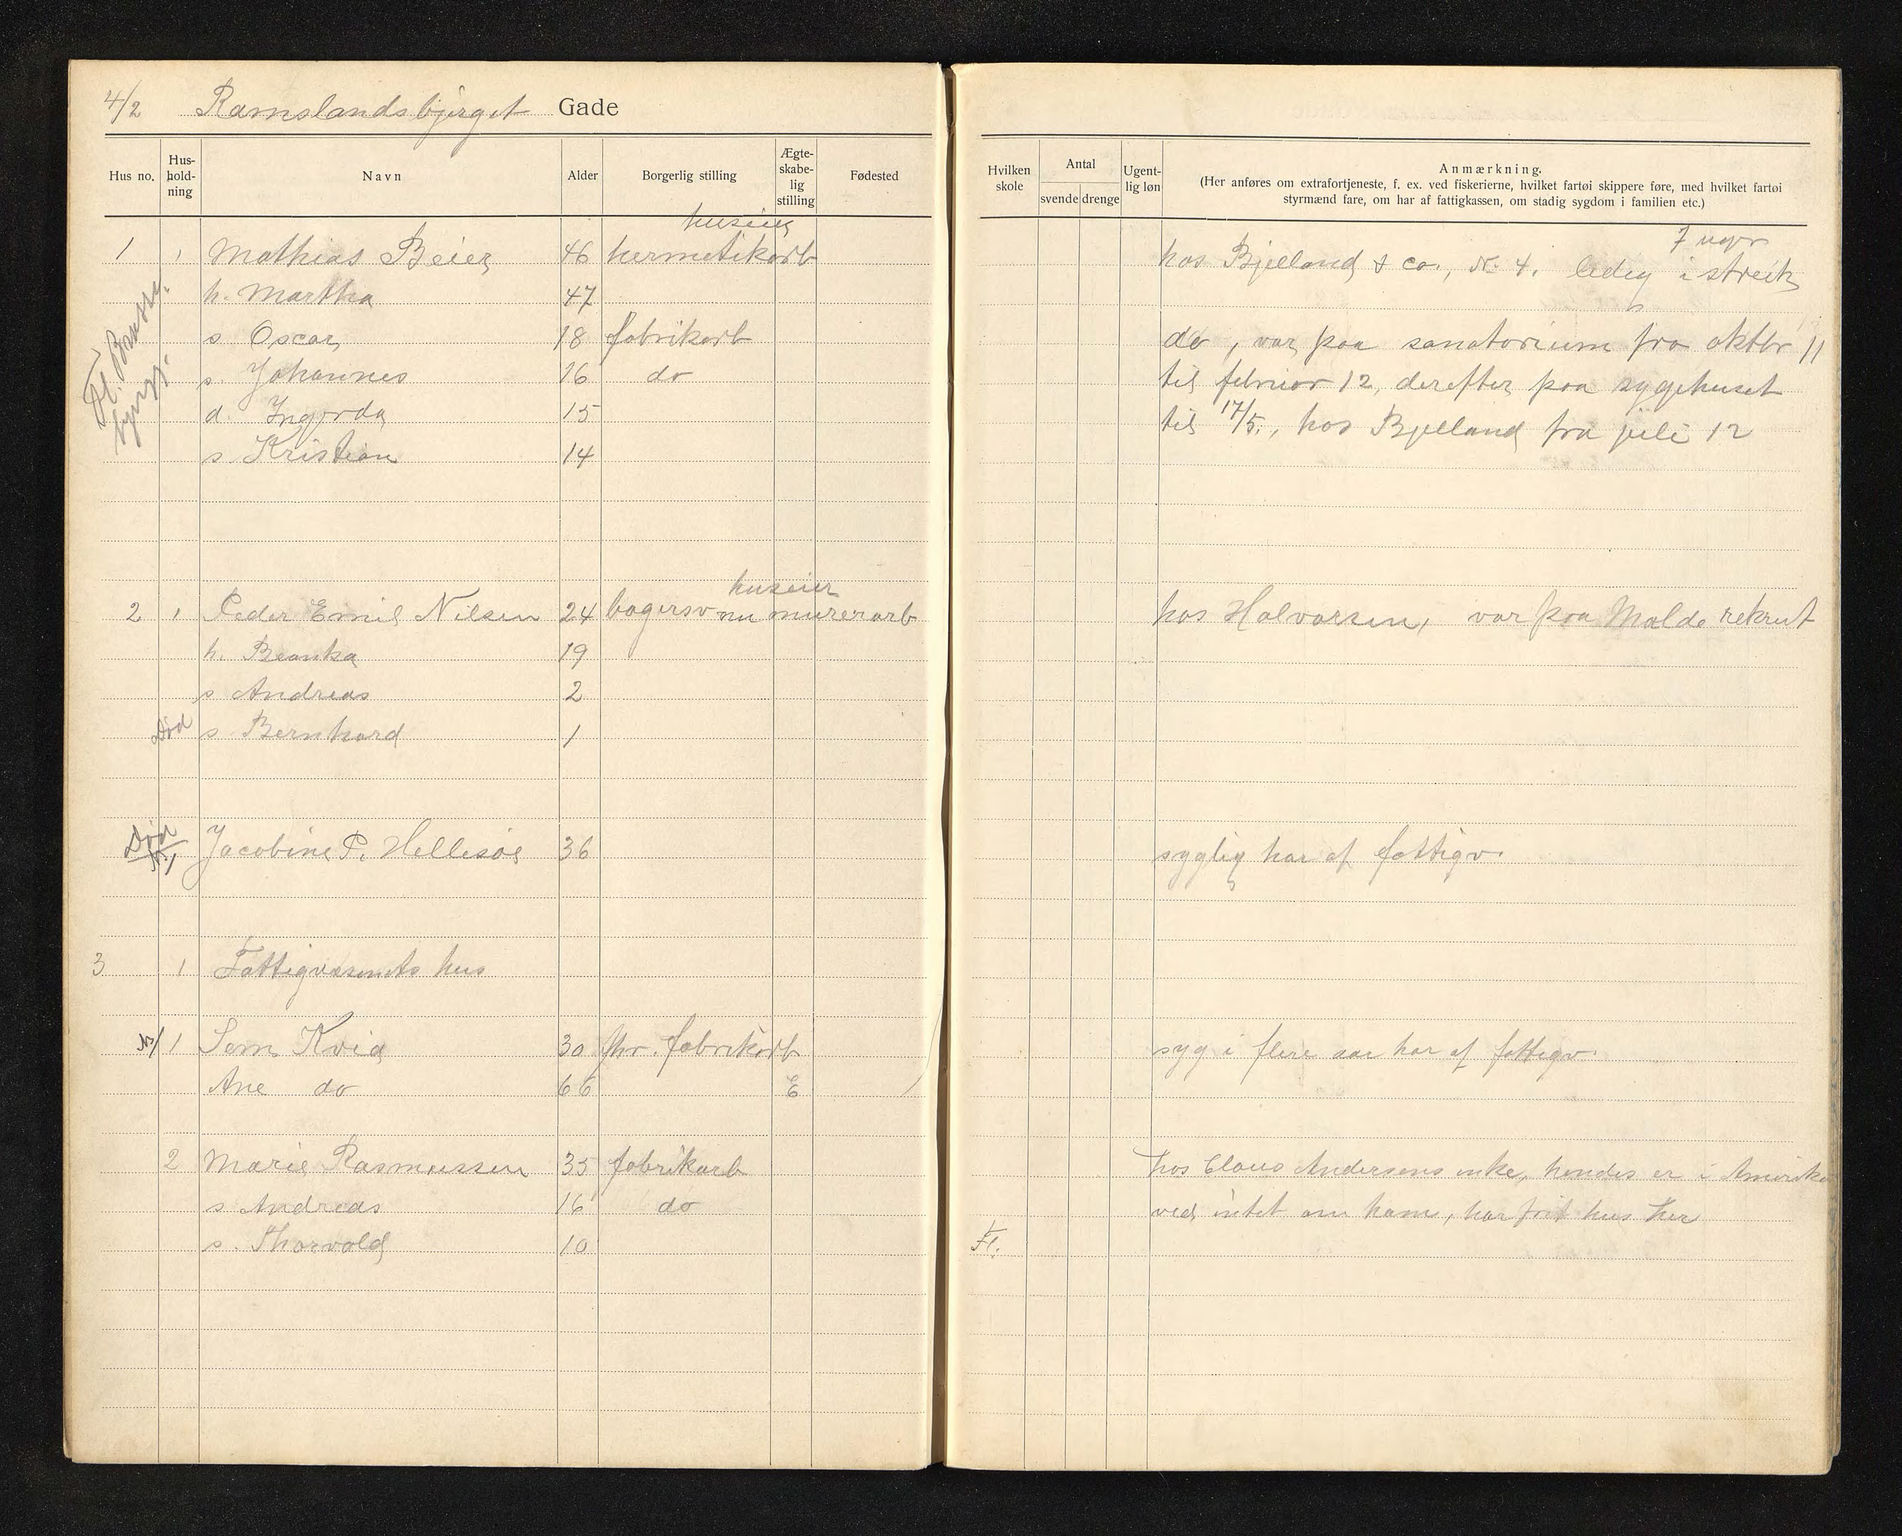 4/2 Ramslandsbjerget Gade
Hus no. Hus-hold-ning Navn Alder Borgerlig stilling Ægte-skabe-lig stilling Fødested
huseier
1 1 Mathias Beier 46 hermetikarb
h. Martha 47
s Oscar 18 fabrikarb
s. Johannes 16 do
d. Ingerda 15
s Kristian 14
Fl.
huseier
2 1 Peder Emil Nilsen 24 bagersv nu murerarb
h. Beanka 19
s Andreas 2
Død s. Bernhard 1
Død
Jacobine P. Hellesøe 36
3 1 Fattigvæsenets hus
1 Sem Kvia 30 fhv. fabrikarb
Ane do 66 E
2 Marie Rasmussen 35 fabrikarb
s. Andreas 16 do
s. Thorvald 10
Hvilken skole Antal svende drenge Ugent-lig løn Anmærkning.
(Her anføres om extrafortjeneste, f. ex. ved fiskerierne, hvilket fartøi skippere føre, med hvilket fartøi
styrmænd fare, om har af fattigkassen, om stadig sygdom i familien etc.)
7 uger
hos Bjelland & co., N. 4. ledig i streik
do, var paa sanatorium fra oktbr 11
til februar 12, derefter paa sygehuset
til 17/5., hos Bjelland fra juli 12
hos Halvorsen, var paa Malde rekrut
syglig har af fattigv.
syg i flere aar har af fattigv.
hos Claus Andersens enke, hendes er i Amerika
ved intet om ham, har frit hus her
Fl.